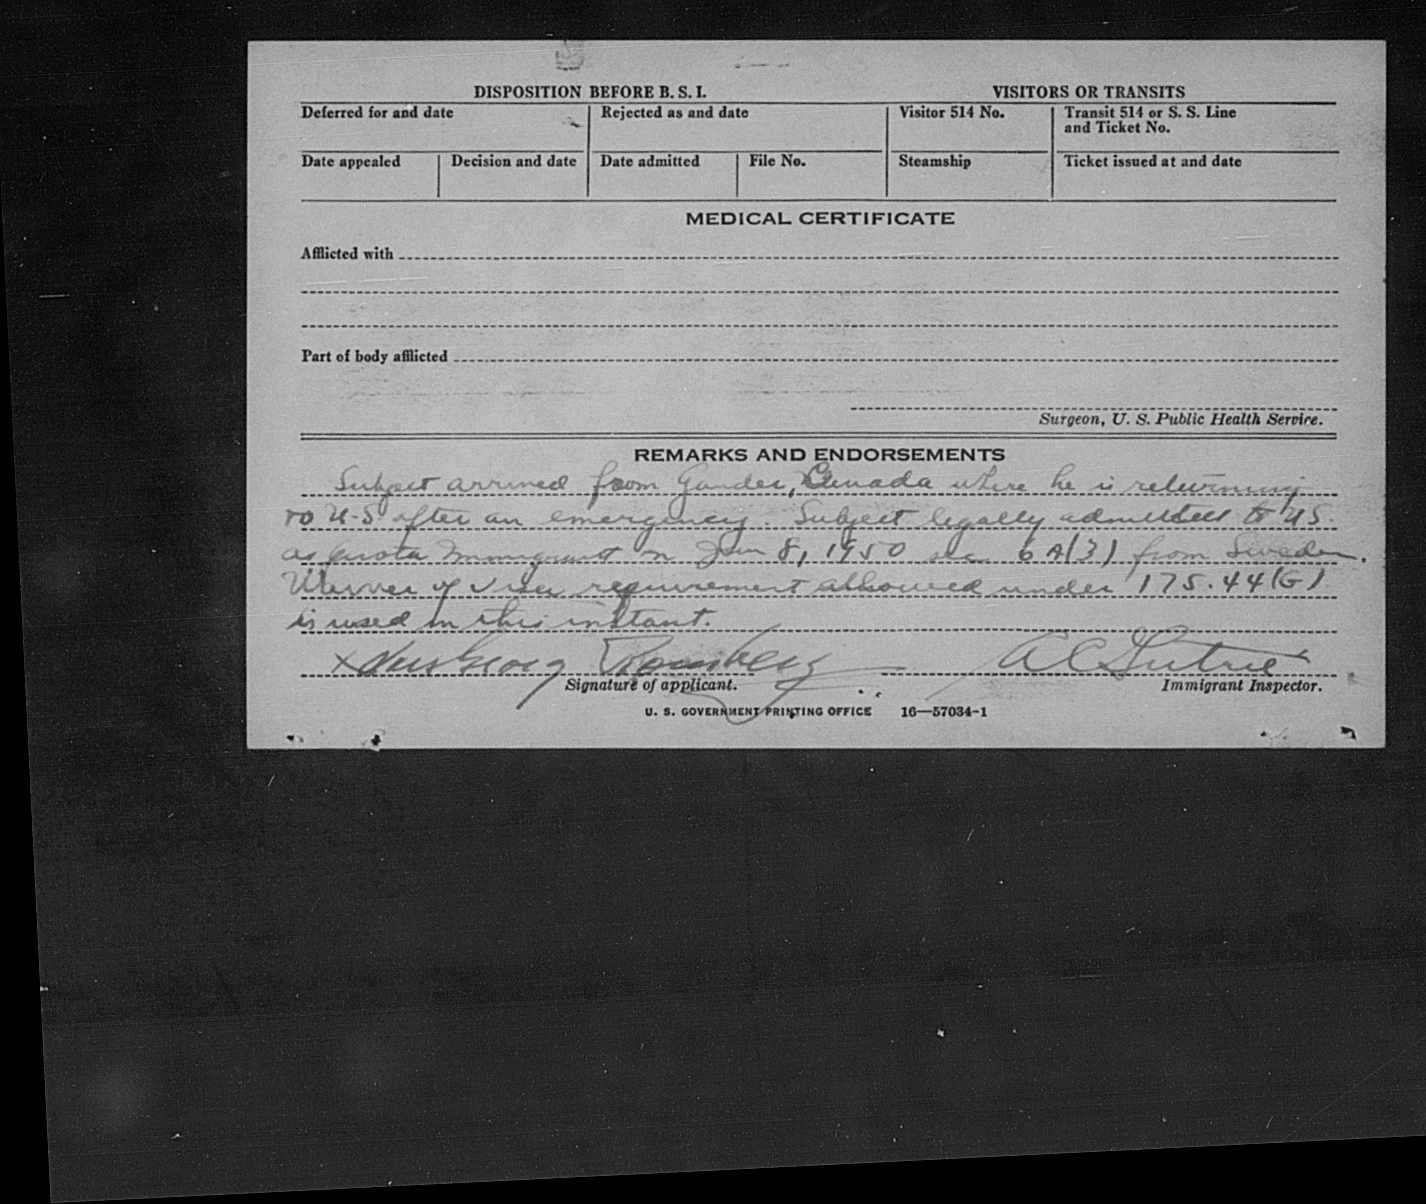 DISPOSITION BEFORE B. S. I.
VISITORS OR TRANSITS
Deferred for and date
Rejected as and date
Visitor 514 No.
Transit 514 or S. S. Line
and Ticket No.
Date appealed
Decision and date
Date admitted
File No.
Steamship
Ticket issued at and date
MEDICAL CERTIFICATE
Afflicted with
Part of body afflicted
Surgeon, U. S. Public Health Service.
REMARKS AND ENDORSEMENTS
Subject arrived from Gander, Canada where he is returning
to U-S after an emergency. Subject legally admitted to US
as quota Immigrant on Jan 8, 1950 sec 6 A(3) from Sweden.
Waiver of visa requirement allowed under 175.44(G)
is used in this instant.
X Georg
A C Gutrie
Signature of applicant.
Immigrant Inspector.
U. S. GOVERNMENT PRINTING OFFICE 16—57034-1